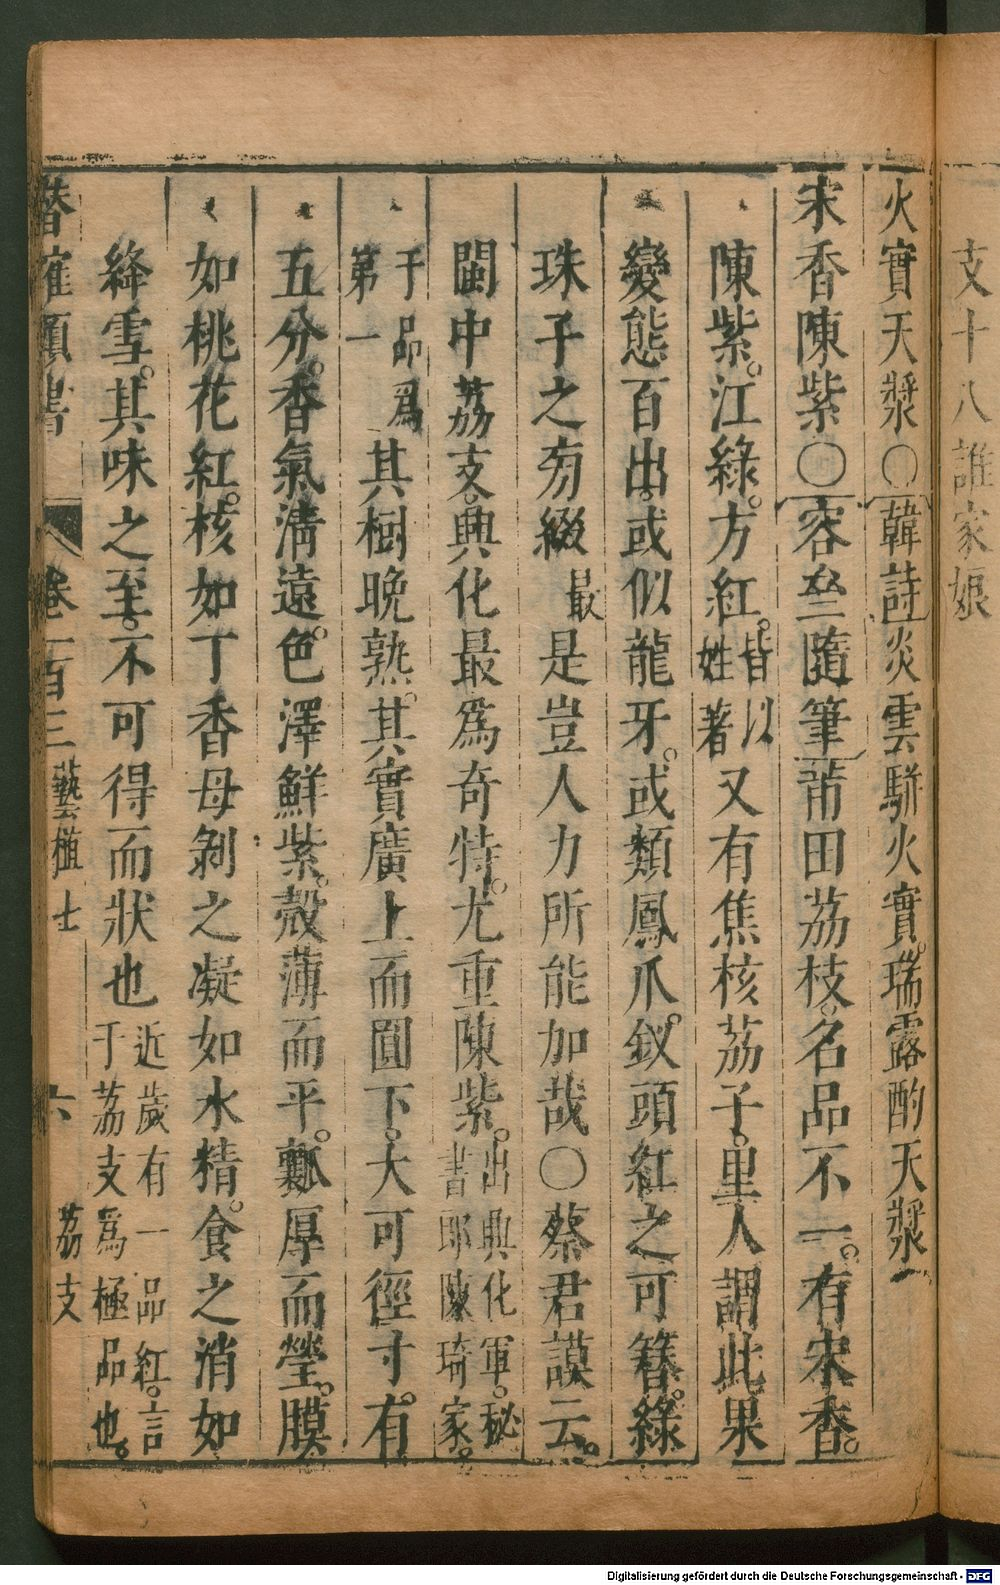 支十八誰家娘
火實天漿○韓詩炎雲駢火實瑞露酌天漿
宋香陳紫○容齋隨筆莆田荔枝名品不一有宋香
陳紫江綠方紅皆以姓著又有焦核荔子里人謂此果
變態百出或似龍牙或類鳳爪釵頭紅之可簪綠
珠子之旁綴最是豈人力所能加哉○蔡君謨云
閩中荔支興化最爲奇特尤重陳紫出興化軍秘書郎陳琦家
于品爲第一其樹晚熟其實廣上而圓下大可徑寸有
五分香氣淸遠色澤鮮紫殼薄而平瓤厚而瑩膜
如桃花紅核如丁香母剝之凝如水精食之消如
絳雪其味之至不可得而狀也近歲有一品紅言于荔支爲極品也
潛確類書 卷一百三 藝植十 六 荔支
Digitalisierung gefördert durch die Deutsche Forschungsgemeinschaft - DFG